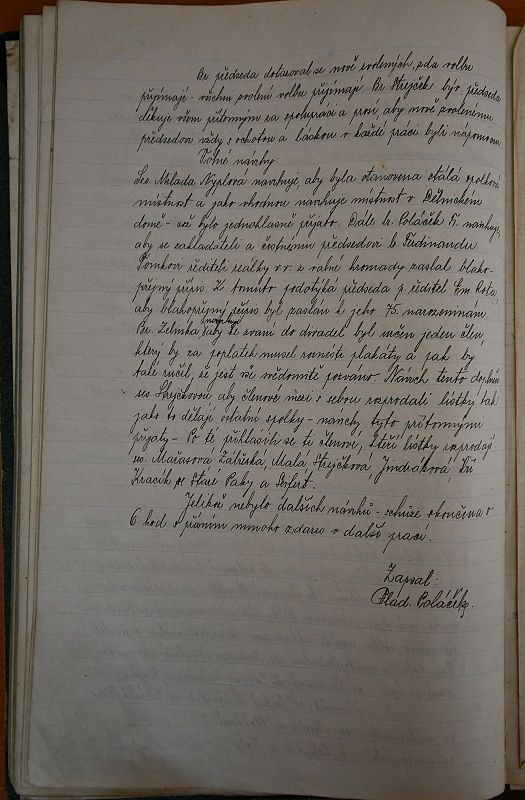 Br. předseda dotazoval se nově zvolených, zda volbu
přijímají - všichni zvolení volbu přijímají. Br. Strejček býv. předseda
děkuje všem přítomným za spolupráci a prosí, aby nově zvolenému
předsedovi vždy s ochotou a láskou v každé práci byli nápomocni.
Volné návrhy:
Ses. Mlada Nyplová navrhuje, aby byla stanovena stálá spolková
místnost a jako vhodnou navrhuje místnost v Dělnickém
domě - což bylo jednohlasně přijato. Dále br. Poláček navrhuje,
aby se zakladateli a čestnému předsedovi b. Ferdinandu
Tomkovi řediteli reálky v. v. z valné hromady zaslal blaho-
přejný přípis. K tomuto podotýká předseda p. ředitel Em. Kota,
aby blahopřejný přípis byl zaslán k jeho 75. narozeninám.
Br. Zelinka navrhuje, aby ke zvaní do divadel byl určen jeden člen,
který by za poplatek musel roznésti plakáty a pak by
také ručil, že jest vše svědomitě pozváno. Návrh tento doplňuje
ses Strejčková aby členové mezi s sebou rozprodali lístky tak
jako to dělají ostatní spolky - návrhy tyto přítomnými
přijaty - Po té přihlásili se ti členové, kteří lístky rozprodají
ses. Mařasová, Záleská, Malá, Strejčková, Jindráková, br.
Kracík ze Staré Paky a Seifert.
Jelikož nebylo dalších návrhů - schůze skončena o
6 hod s přáním mnoho zdaru v další práci.
Zapsal:
Vlad. Poláček.